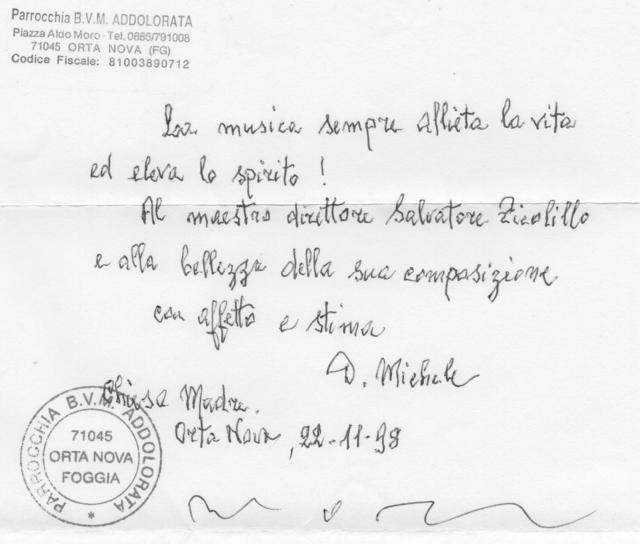 Parrocchia B.V.M. ADDOLORATA
Piazza Aldo Moro - Tel. 0885/791008
71045 ORTA NOVA (FG)
Codice Fiscale: 81003890712
La musica sempre allieta la vita
ed eleva lo spirito !
Al maestro direttore Salvatore Zicolillo
e alla bellezza della sua composizione
con affetto e stima
D. Michele
Chiesa Madre.
Orta Nova, 22-11-98
PARROCCHIA B.V.M. ADDOLORATA *
71045
ORTA NOVA
FOGGIA